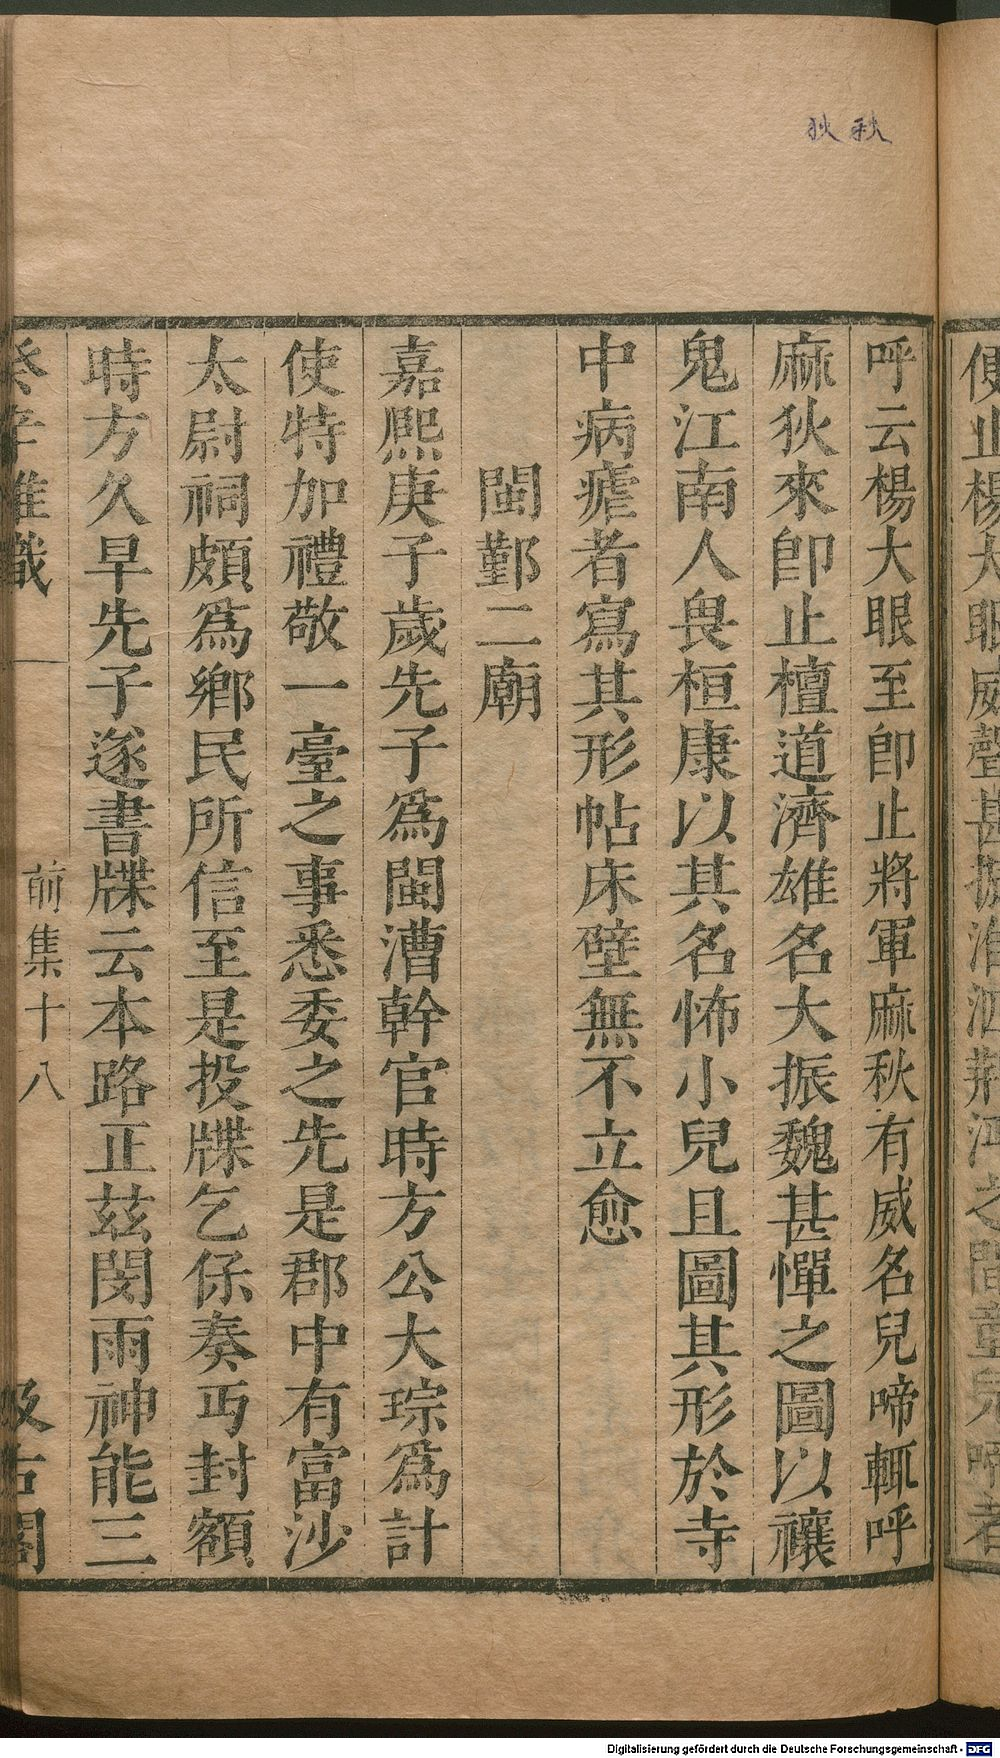 秋狄
便止楊大眼威聲甚振淮泗荆沔之間童兒啼者
呼云楊大眼至卽止將軍麻秋有威名兒啼輒呼
麻狄來卽止檀道濟雄名大振魏甚憚之圖以禳
鬼江南人畏桓康以其名怖小兒且圖其形於寺
中病瘧者寫其形帖床壁無不立愈
閩鄞二廟
嘉熙庚子歲先子爲閩漕幹官時方公大琮爲計
使特加禮敬一臺之事悉委之先是郡中有富沙
太尉祠頗爲鄉民所信至是投牒乞保奏丐封額
時方久旱先子遂書牒云本路正兹閔雨神能三
癸辛雜識 前集十八 汲古閣
Digitalisierung gefördert durch die Deutsche Forschungsgemeinschaft - DFG